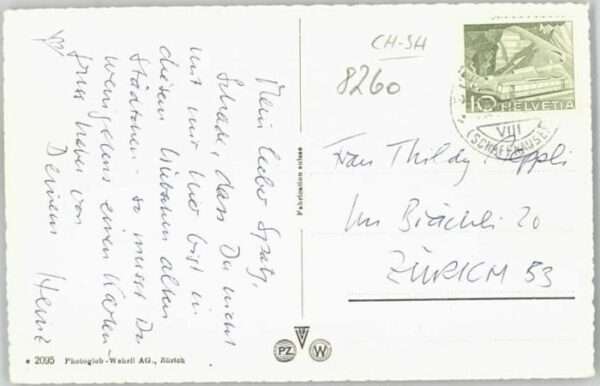 Mein lieber Spatz,
Schade, dass Du nicht
mit mir hier bist in
diesem alten
Städtchen - so musst Du
wenigstens einen Karten-
gruss haben von
Deinem Heinz
CH-SH
8260
10 HELVETIA
VIII
(SCHAFFHAUSEN)
Frau Thildy Aeppli
Im Brächli 20
ZÜRICH 53
Fabrication suisse
PZ W
* 2095 Photoglob-Wehrli AG., Zürich